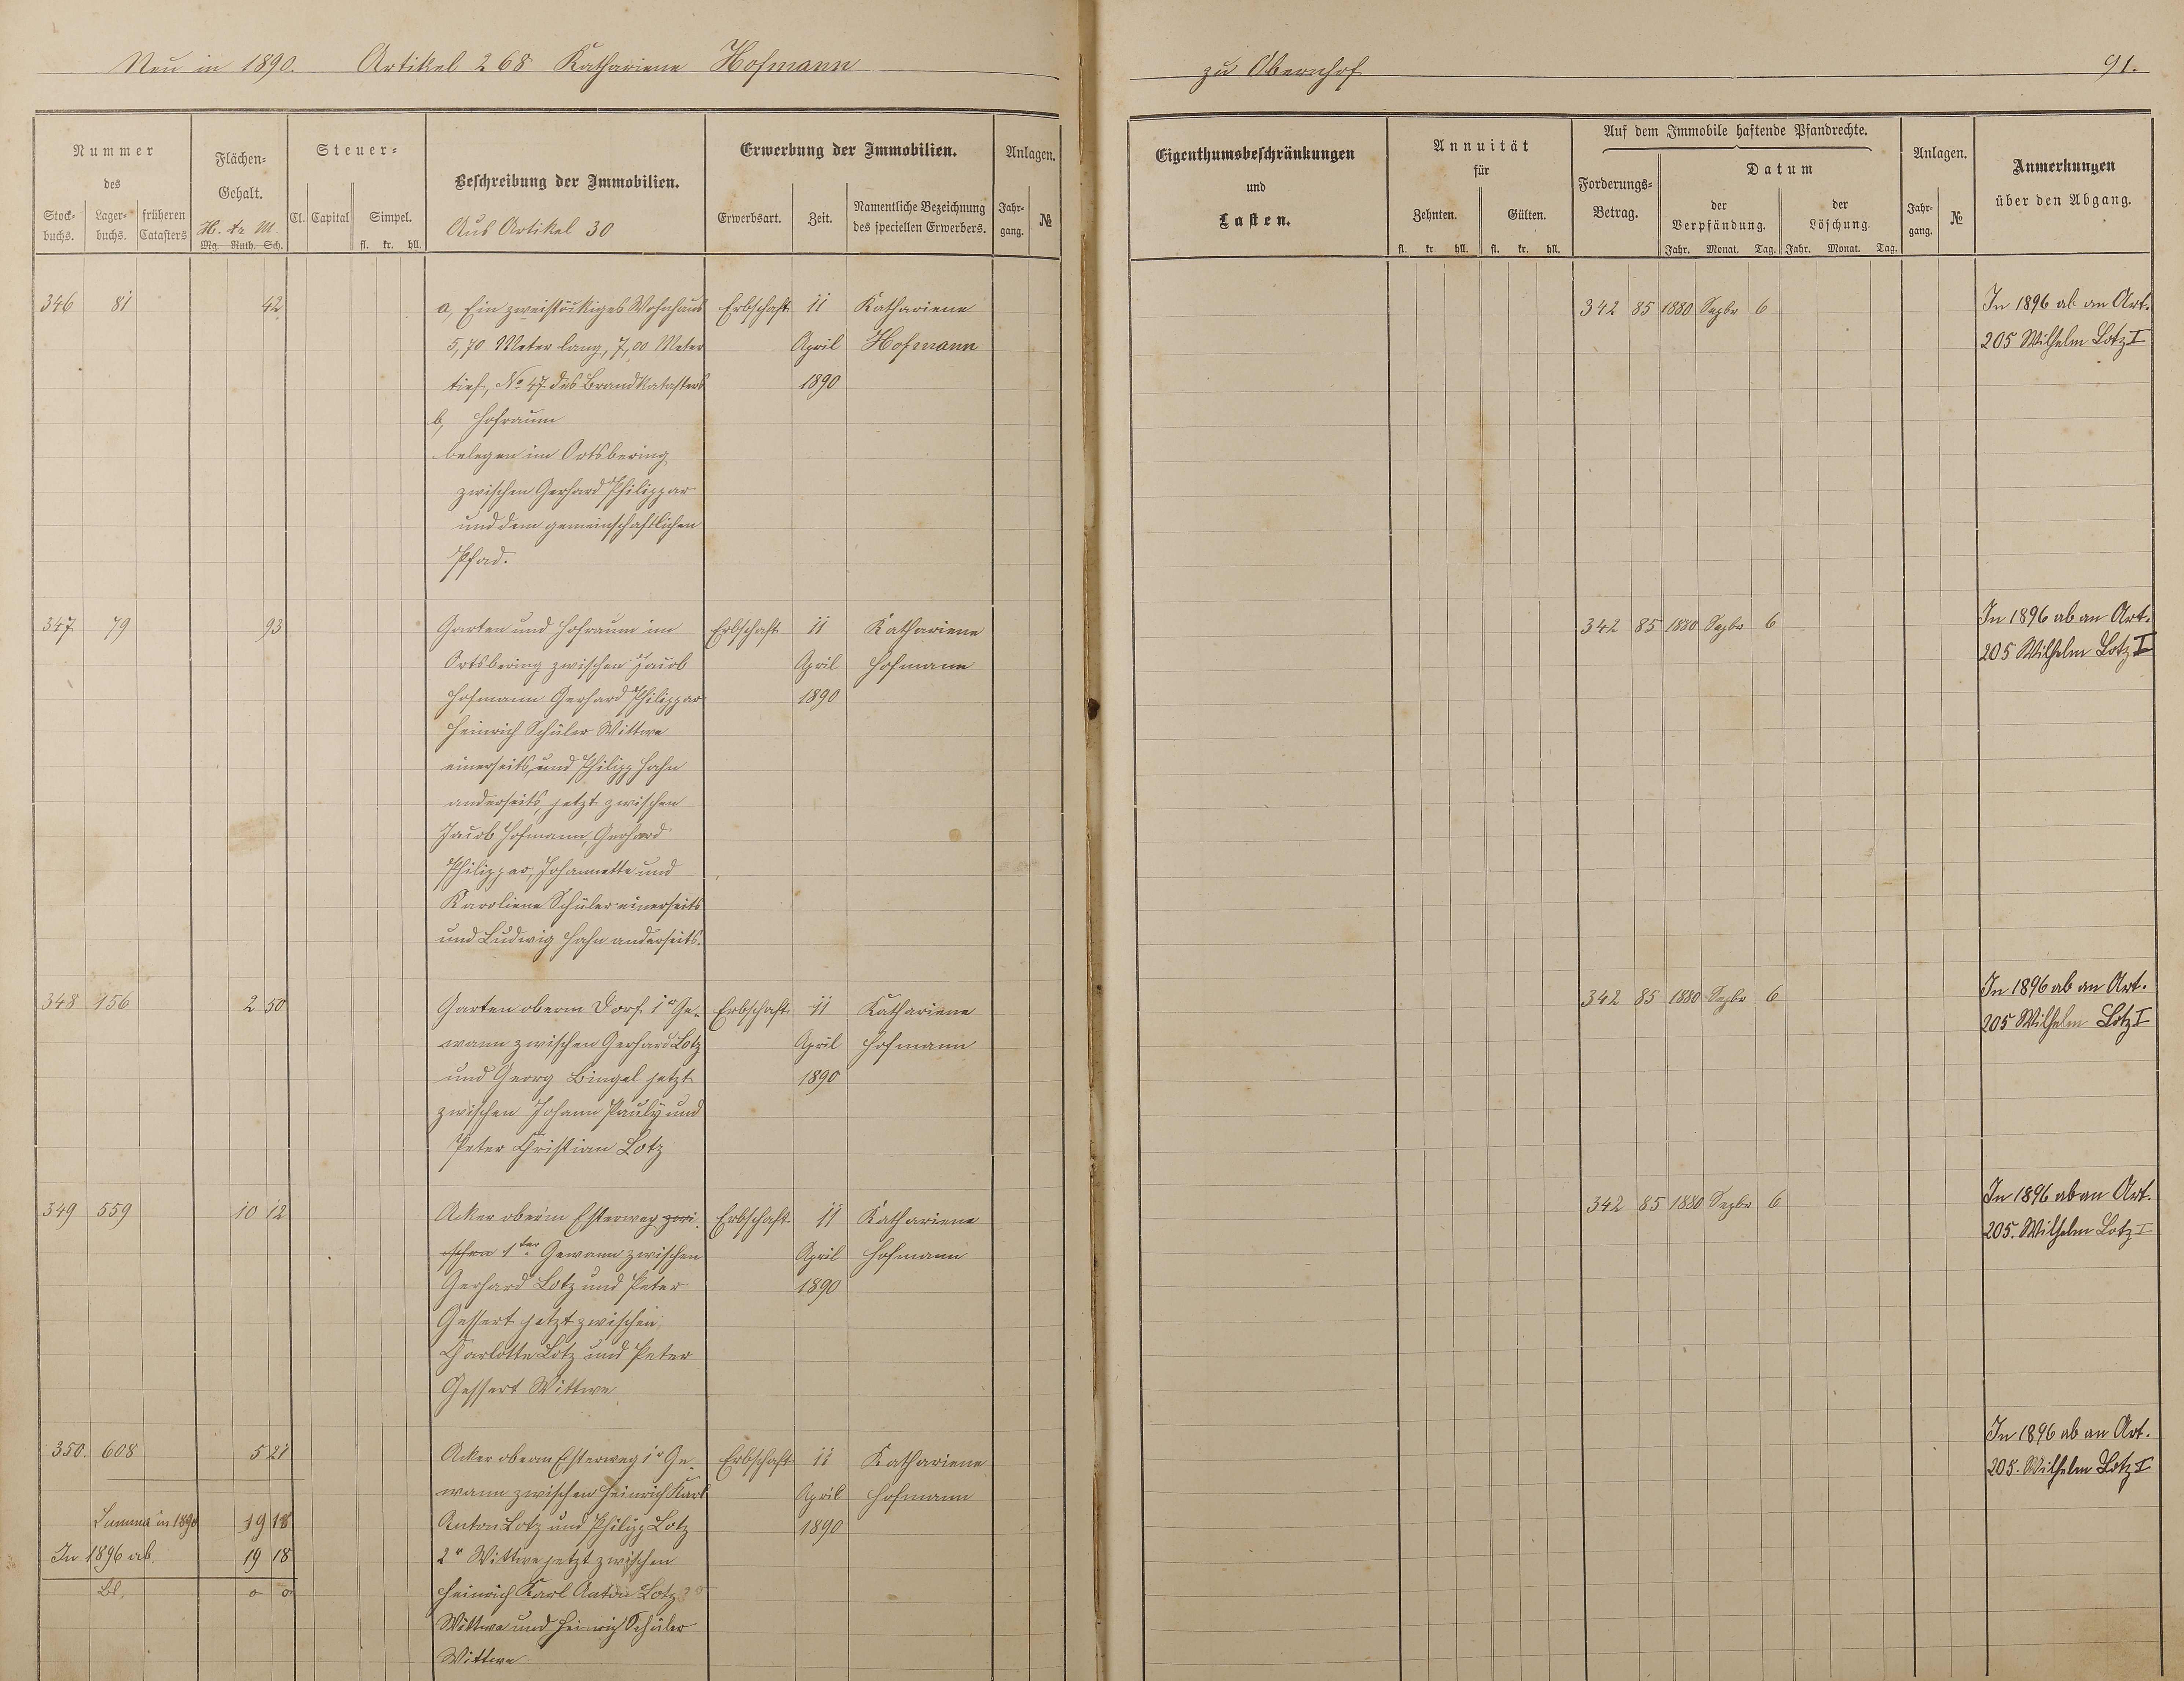 Neu in 1890. Artikel 268 Kathariene Hofmann
zu Obernhof
91.
Nummer
des
Stock-
buchs.
Lager-
buchs.
früheren
Catasters
Flächen-
Gehalt.
H. Ar M.
Mg. Ruth. Sch.
Steuer-
Cl. Capital Simpel.
fl. kr. hll.
Beschreibung der Immobilien.
Aus Artikel 30
Erwerbung der Immobilien.
Erwerbsart. Zeit.
Namentliche Bezeichnung
des speciellen Erwerbers.
Anlagen.
Jahr-
gang.
№
Eigenthumsbeschränkungen
und
Lasten.
Annuität
für
Zehnten. Gülten.
fl. kr. hll. fl. kr. hll.
Auf dem Immobile haftende Pfandrechte.
Forderungs-
Betrag.
Datum
der
Verpfändung.
der
Löschung.
Jahr. Monat. Tag. Jahr. Monat. Tag.
Anlagen.
Jahr-
gang.
№
Anmerkungen
über den Abgang.
346 81 42 a, Ein zweistöckiges Wohnhaus Erbschaft 11 Kathariene 342 85 1880 Sepbr 6 In 1896 ab an Art.
5,70 Meter lang, 7,00 Meter April Hofmann 205 Wilhelm Lotz I
tief, No 47 des Brandkatasters 1890
b, Hofraum
belegen im Ortsbering
zwischen Gerhard Philippar
und dem gemeinschaftlichen
Pfad.
347 79 93 Garten und Hofraum im Erbschaft 11 Kathariene 342 85 1880 Sepbr 6 In 1896 ab an Art.
Ortsbering zwischen Jacob April Hofmann 205 Wilhelm Lotz I
Hofmann Gerhard Philippar 1890
Heinrich Schüler Wittwe
einerseits, und Philipp Hahn
anderseits, jetzt zwischen
Jacob Hofmann, Gerhard
Philippar, Johannette und
Karoliene Schüler einerseits
und Ludwig Hahn anderseits.
348 156 2 50 Garten oberm Dorf 1r Ge- Erbschaft 11 Kathariene 342 85 1880 Sepbr 6 In 1896 ab an Art.
wann zwischen Gerhard Lotz April Hofmann 205 Wilhelm Lotz I
und Georg Bingel jetzt 1890
zwischen Johann Pauly und
Peter Christian Lotz
349 559 10 12 Acker oberm Esterweg zwi- Erbschaft 11 Kathariene 342 85 1880 Sepbr 6 In 1896 ab an Art.
schen 1ter Gewann zwischen April Hofmann 205. Wilhelm Lotz I
Gerhard Lotz und Peter 1890
Gessert jetzt zwischen
Charlotte Lotz und Peter
Gessert Wittwe
350. 608 5 21 Acker oberm Esterweg 1r Ge- Erbschaft 11 Kathariene In 1896 ab an Art.
wann zwischen Heinrich Karl April Hofmann 205. Wilhelm Lotz I
Summa in 1890 19 18 Anton Lotz und Philipp Lotz 1890
In 1896 ab. 19 18 2r Wittwe jetzt zwischen
Bl. 0 0 Heinrich Karl Anton Lotz
Wittwe und Heinrich Schüler
Wittwe